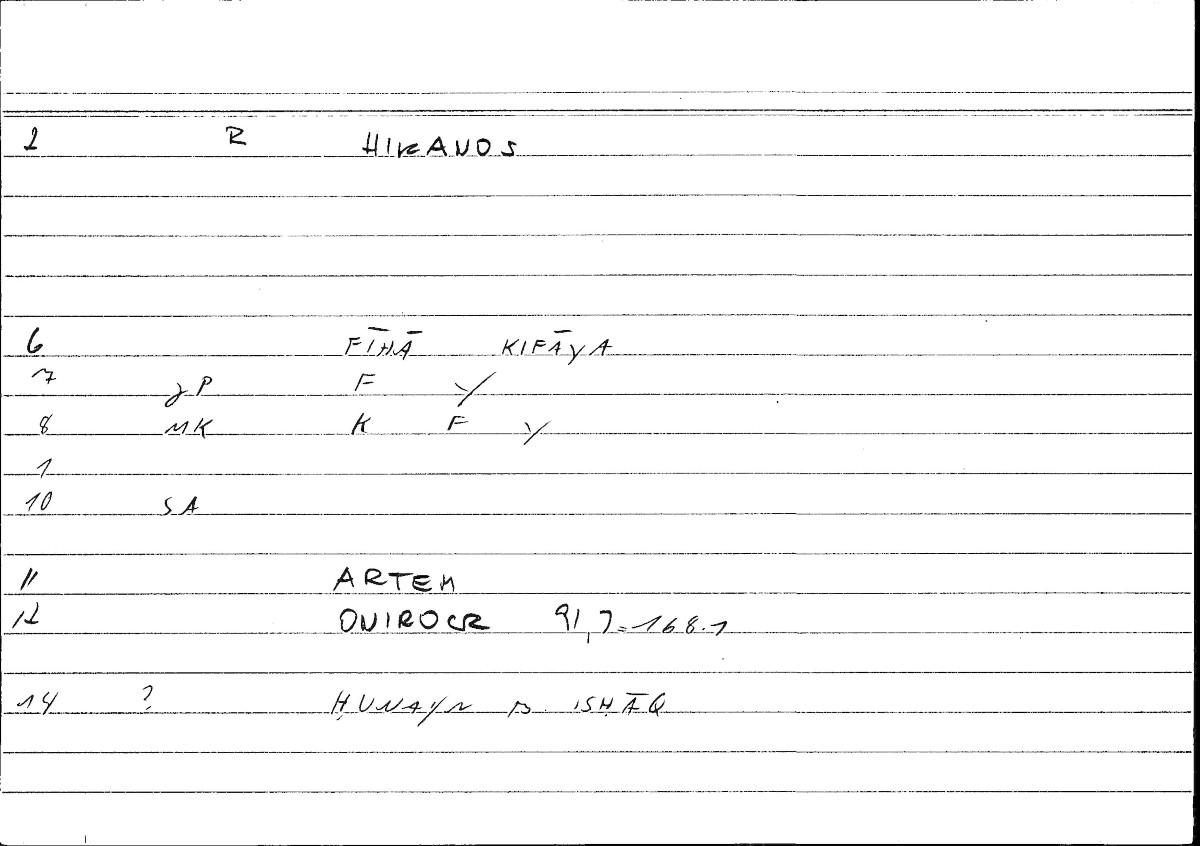 2 R HIKANOS
6 FĪHĀ KIFĀYA
7 JP F Y
8 MK K F Y
1
10 SA
11 ARTEM
12 ONIROCR 91,7=168.1
14 ? ḤUNAYN B. ISḤĀQ